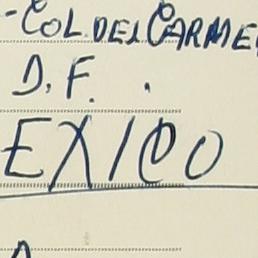 -COL. DEL CARMEN
D.F.
EXICO